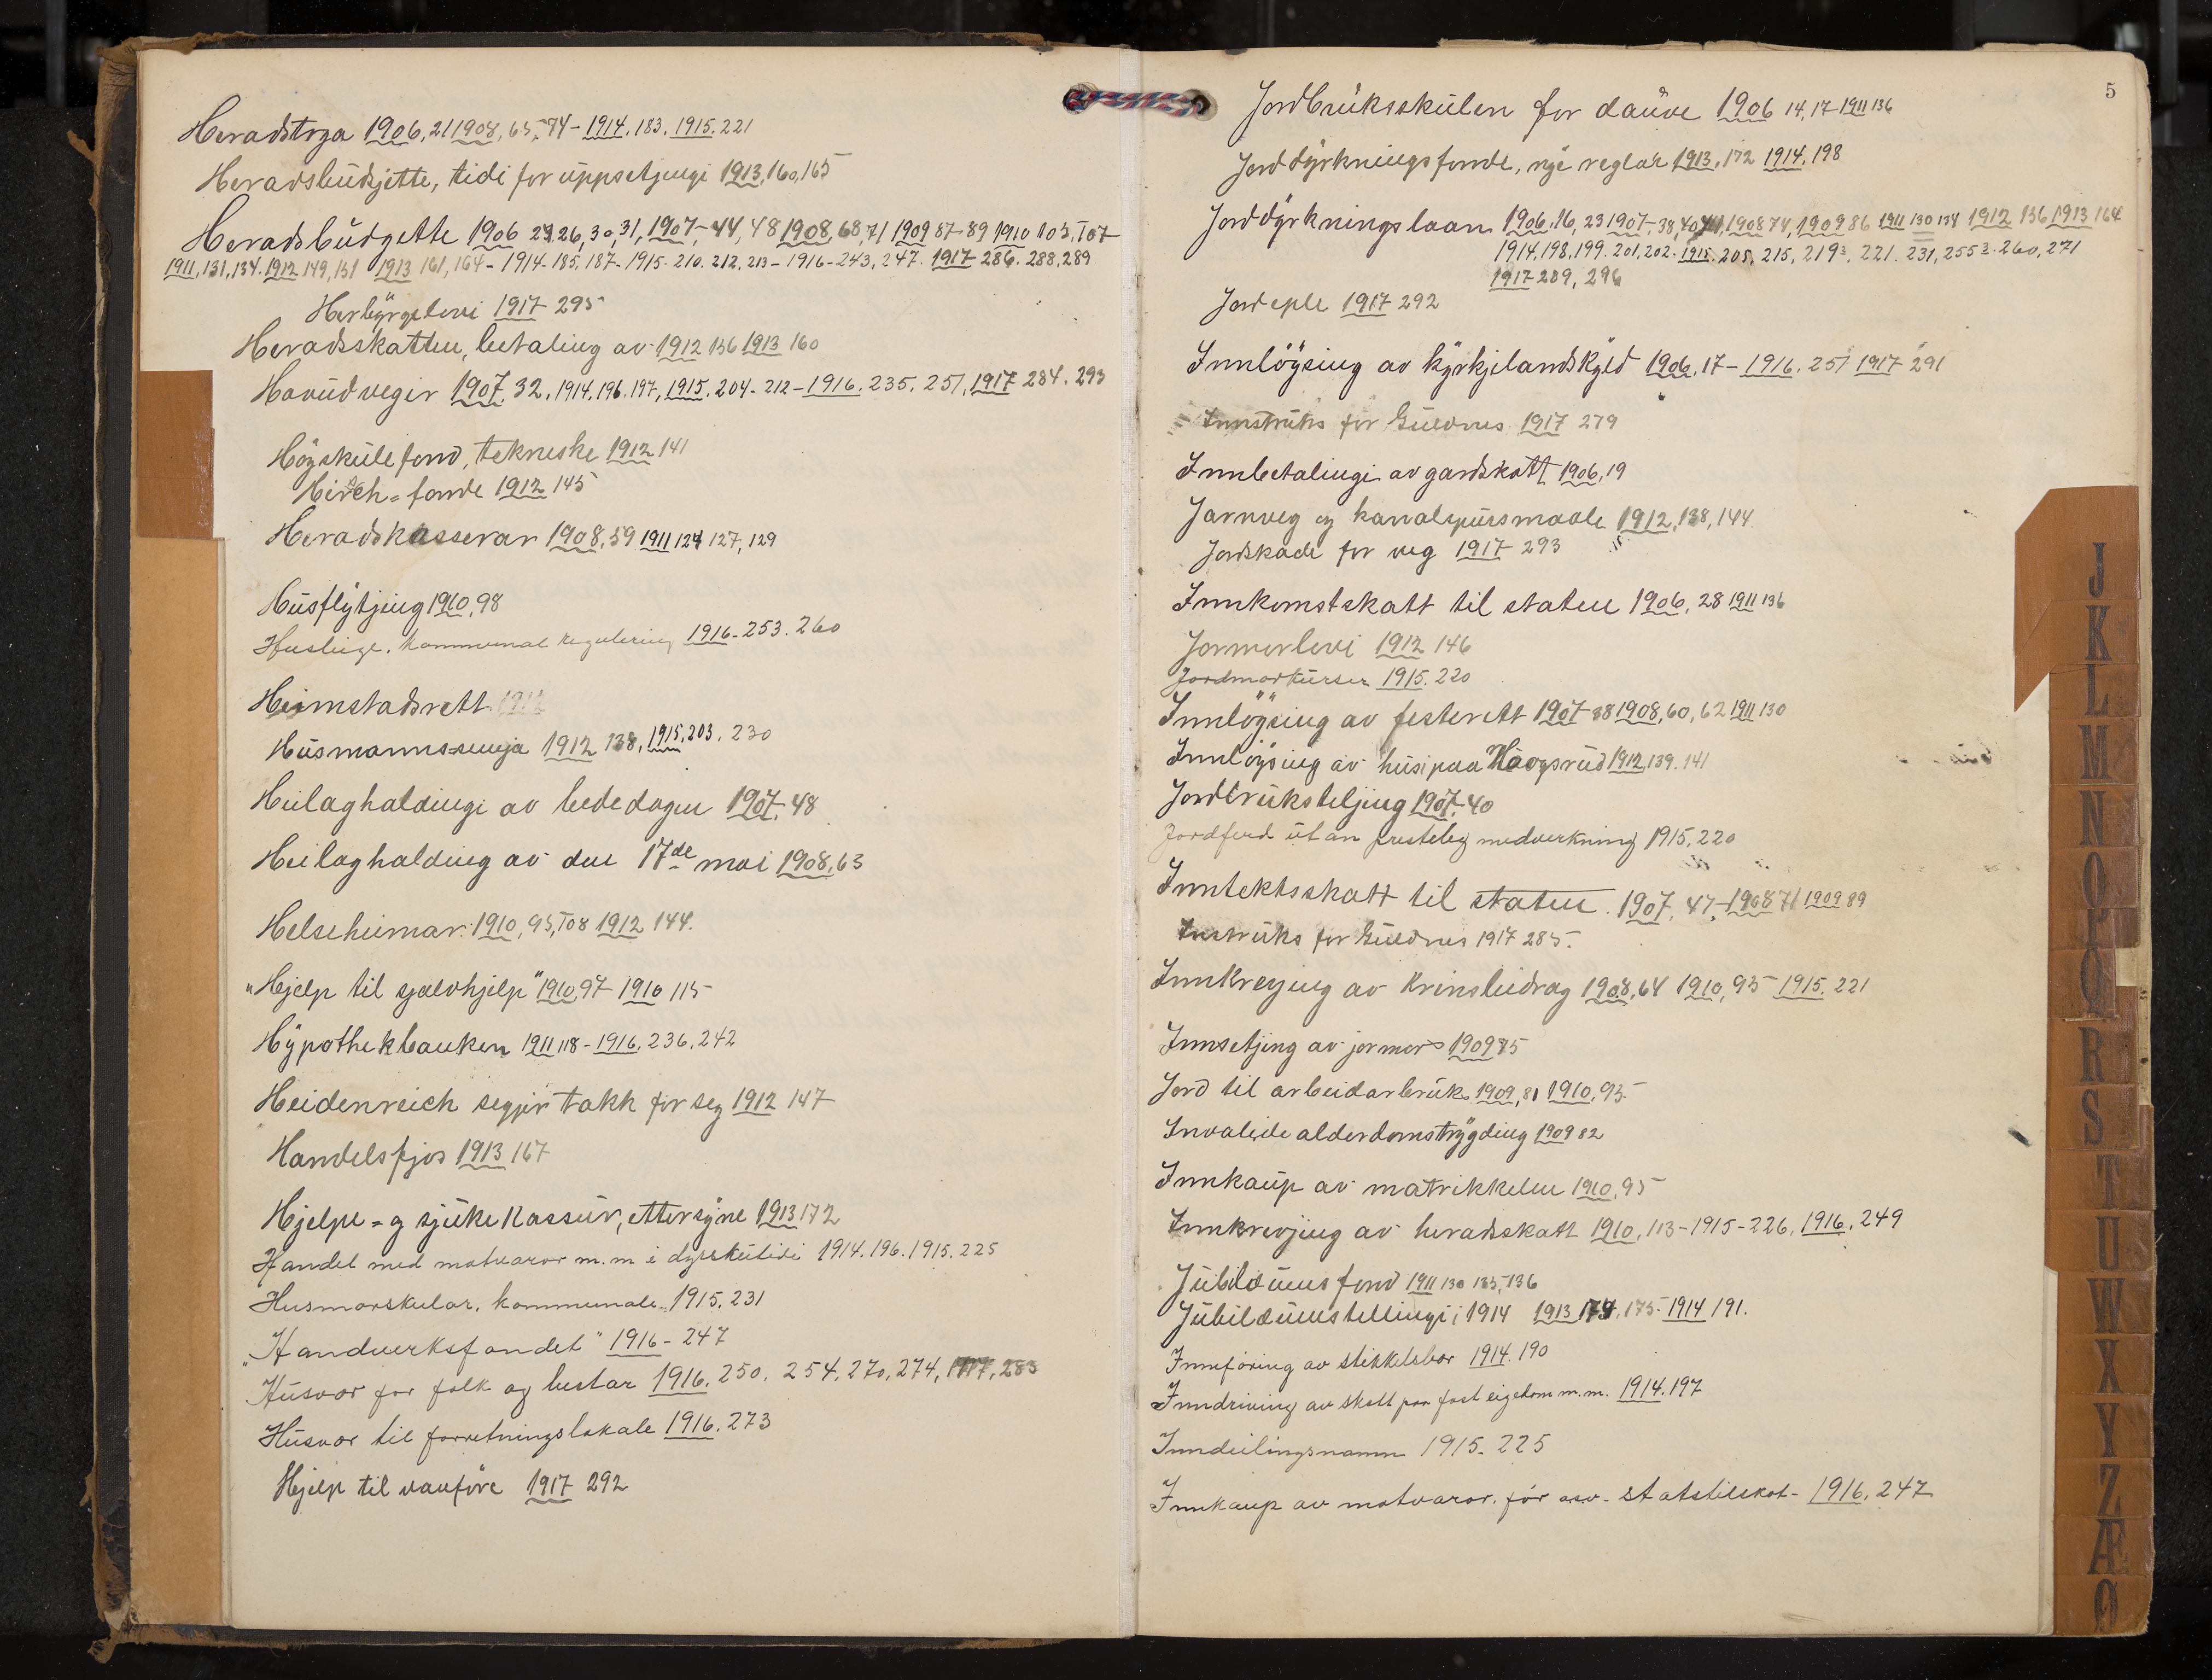 Heradstrga 1906, 21 1908, 65, 74 - 1914. 183. 1915. 221
Heradsbudsjette, tidi for uppsetjingi 1913, 160, 165
Heradsbudgette 1906 23, 26, 30, 31, 1907, 44, 48 1908, 68, 71 1909 87-89 1910 103, 107
1911, 131, 134. 1912 149, 151 1913 161, 164 - 1914. 185, 187 - 1915. 210. 212, 213 - 1916 - 243, 247. 1917 286. 288, 289
Herbyrgelovi 1917 295
Heradsskatten, betaling av 1912 136 1913 160
Hovudvegir 1907, 32. 1914. 196. 197, 1915. 204. 212 - 1916. 235. 251, 1917 284. 293
Høgskulefond, tekneske 1912 141
Hirch= fonde 1912 145
Heradskasserar 1908, 59 1911 124 127, 129
Husflytjing 1910, 98
Husleige. Kommunal regulering 1916 - 253. 260
Heimstadsrett 1912
Husmannsnemnja 1912 138, 1915. 203. 230
Heilaghaldingi av bededagen 1907, 48
Heilaghalding av den 17de mai 1908, 63
Helseheimar 1910, 95, 108 1912 144.
"Hjelp til sjølvhjelp" 1910, 97 - 1910 115
Hypothekbanken 1911 118 - 1916. 236, 242
Heidenreich segjer takk for seg 1912 147
Handelsfjøs 1913 167
Hjelpe= og sjukekassur, ettersyne 1913 172
Handel med matvaror m. m i dyrskutidi 1914. 196. 1915. 225
Husmorskular, kommunale 1915, 231
"Handverksfondet" 1916 - 247
Husvær for folk og bustar 1916. 250. 254. 270, 274, 1917, 283
Husvær til forretningslokale 1916. 273
Hjelp til vanføre 1917 292
5
Jordbruksskulen for dauve 1906 14, 17 - 1911 136
Jorddyrkningsfonde, nye reglar 1913, 172 1914, 198
Jorddyrkningslaan 1906, 16, 23 1907, 38, 40, 41, 1908 74, 1909 86 1911 130 134 1912 136 1913 164
1914, 198, 199. 201, 202. 1915. 205, 215, 219, 221. 231, 255. 260, 271
1917 289, 296
Jordeple 1917 292
Innløysing av kyrkjelandskyld 1906, 17 - 1916. 251 1917 291
Innstruks for Guldnes 1917 279
Innbetalingi av gardskatt 1906, 19
Jarnveg og kanalspursmaale 1912, 138, 144
Jordskade for veg 1917 293
Innkomstskatt til staten 1906, 28 1911 136
Jormorlovi 1912 146
Jordmorkurser 1915. 220
Innløysing av festerett 1907 38 1908, 60, 62 1911 130
Innløysing av husi paa Haugsrud 1912, 139. 141
Jordbruksteljing 1907, 40
Jordferd utan presteleg medverkning 1915, 220
Inntektsskatt til staten 1907, 47, 1908 71 1909 89
Instruks for Guldnes 1917 285.
Innkreving av krinsbidrag 1908, 64 1910, 95 1915. 221
Innsetjing av jormor 1909 75
Jord til arbeidarbruk 1909, 81 1910, 95
Invalide alderdomstrygding 1909 82
Innkaup av matrikkelen 1910, 95
Innkrevjing av heradskatt 1910, 113 - 1915 - 226, 1916. 249
Jubilæumsfond 1911 130 135, 136
Jubilæumstellingi i 1914 1913 174, 175. 1914 191.
Innføring av stikkelsbær 1914. 190
Inndriving av skatt paa fast eigedom m. m. 1914. 197
Inndeilingsnamn 1915. 225
Innkaup av matvaror, fôr osv. statstilskot - 1916, 247